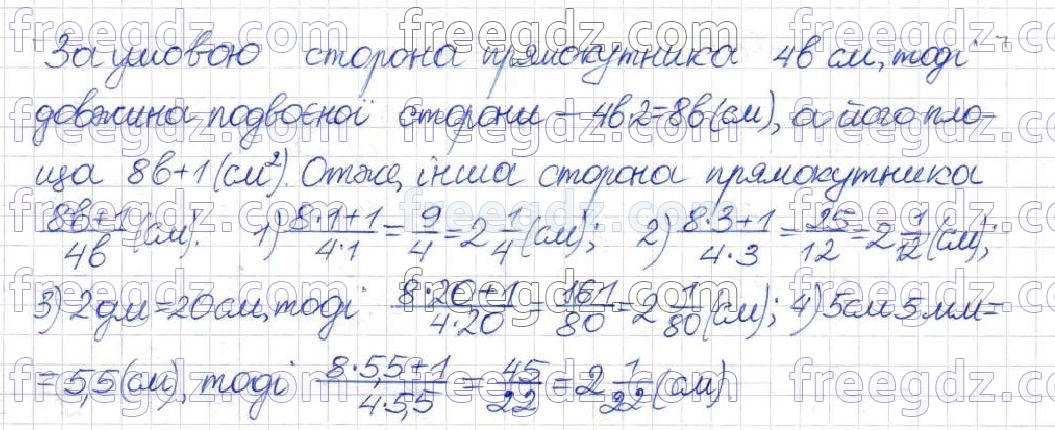 За умовою сторона прямокутника 4b см, тоді
довжина подвоєної сторони – 4b·2=8b(см), а його пло-
ща 8b+1(см²). Отже, інша сторона прямокутника
(8b+1)/4b (см). 1) (8·1+1)/(4·1) = 9/4 = 2 1/4 (см); 2) (8·3+1)/(4·3) = 25/12 = 2 1/12 (см);
3) 2дм=20см, тоді (8·20+1)/(4·20) = 161/80 = 2 1/80 (см); 4) 5см 5мм=
=5,5(см), тоді (8·5,5+1)/(4·5,5) = 45/22 = 2 1/22 (см)
freegdz.com